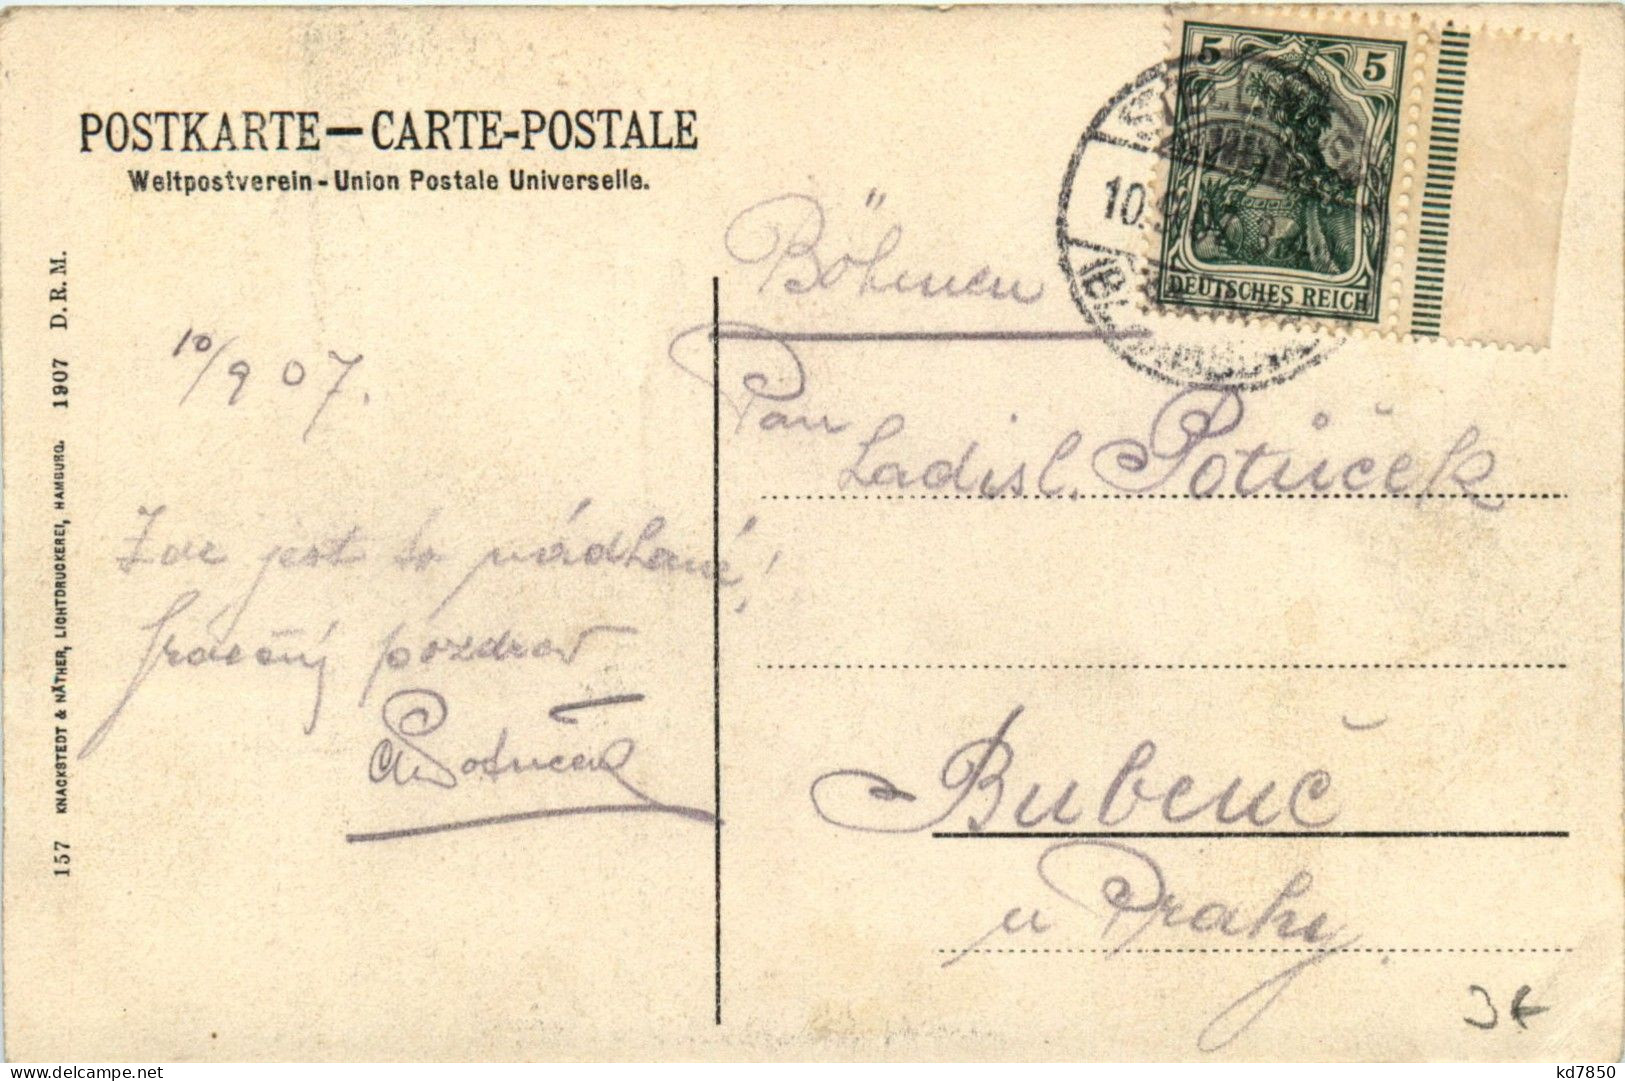 POSTKARTE—CARTE-POSTALE
Weltpostverein-Union Postale Universelle.
5 5
DEUTSCHES REICH
10.9.07. 3-4
Böhmen
10/9 07.
Pan
Ladisl. Potůček
Zde jest to nádherné!
srdečný pozdrav
Potůček
Bubeneč
u Prahy.
157 KNACKSTEDT & NÄTHER, LICHTDRUCKEREI, HAMBURG. 1907 D. R. M.
3€
kd7850